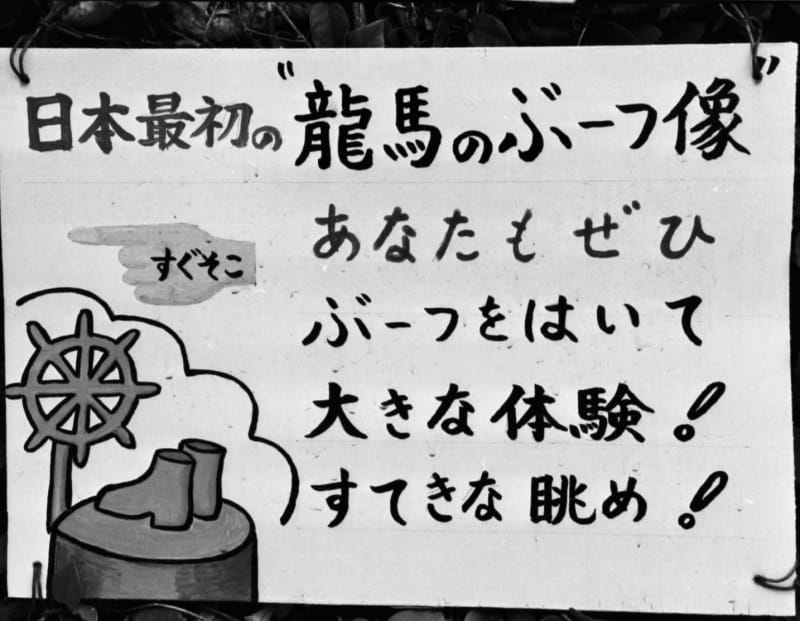 日本最初の"龍馬のぶーつ像"
すぐそこ
あなたもぜひ
ぶーつをはいて
大きな体験!
すてきな眺め!